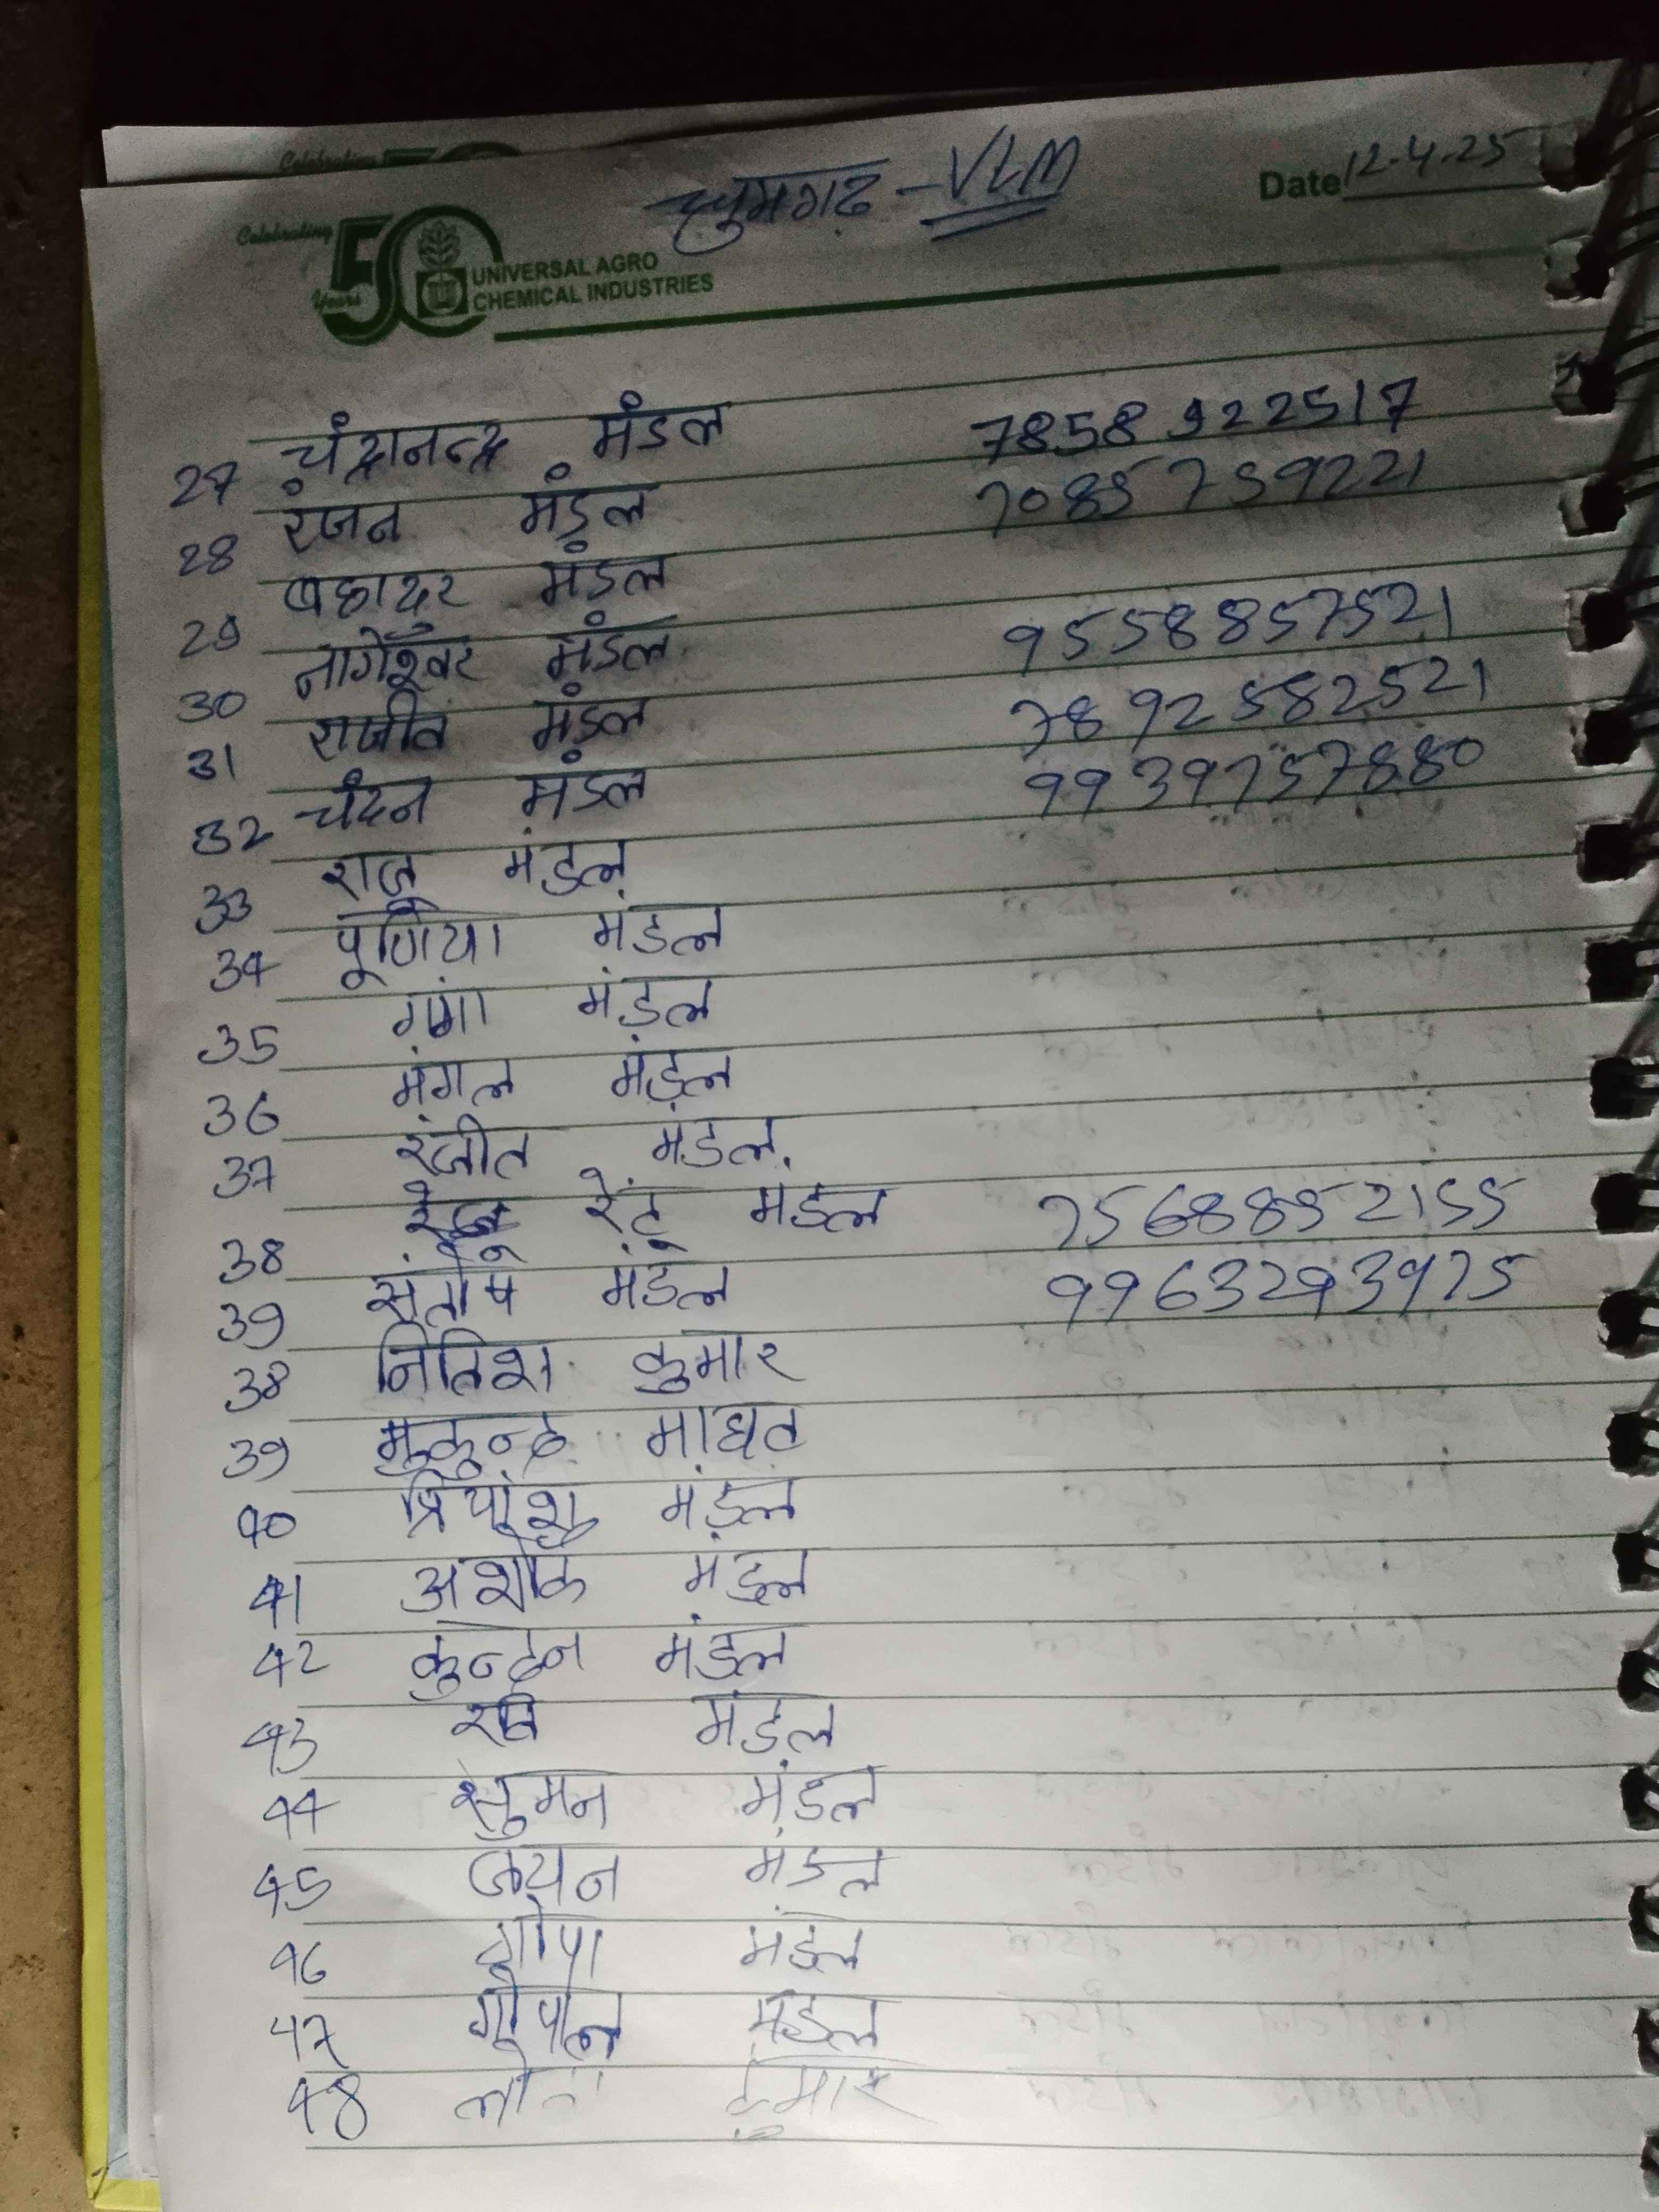 Celebrating
50
Years
UNIVERSAL AGRO
CHEMICAL INDUSTRIES
- VLM
Date 12-4-25
27 चंद्रानन्द्र मंडल 7858922517
28 रंजन मंडल 7085759221
29 बहादुर मंडल
30 नागेश्वर मंडल 9558857521
31 राजीव मंडल 7892582521
32 चंदन मंडल 9939757880
33 राजू मंडल
34 पूर्णिया मंडल
35 गंगा मंडल
36 मंगल मंडल
37 रंजीत मंडल
38 रेंटू मंडल 7568852155
39 संतोष मंडल 9963293975
38 नितिश कुमार
39 मुकुन्द
40 प्रियांशु मंडल
41 अशोक मंडल
42 कुन्दन मंडल
43 मंडल
44 सुमन मंडल
45 मंडल
46 गोपा मंडल
47 गोपाल मंडल
48 कुमार